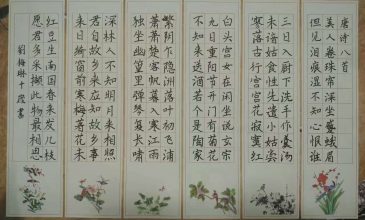 唐诗八首
美人卷珠帘深坐蹙蛾眉
但见泪痕湿不知心恨谁
三日入厨下洗手作羹汤
未谙姑食性先遣小姑尝
寥落古行宫宫花寂寞红
白头宫女在闲坐说玄宗
九日重阳节开门有菊花
不知来送酒若个是陶家
繁阴乍隐洲落叶初飞浦
萧萧楚客帆暮入寒江雨
独坐幽篁里弹琴复长啸
深林人不知明月来相照
君自故乡来应知故乡事
来日绮窗前寒梅著花未
红豆生南国春来发几枝
愿君多采撷此物最相思
劉梅琳十歲書